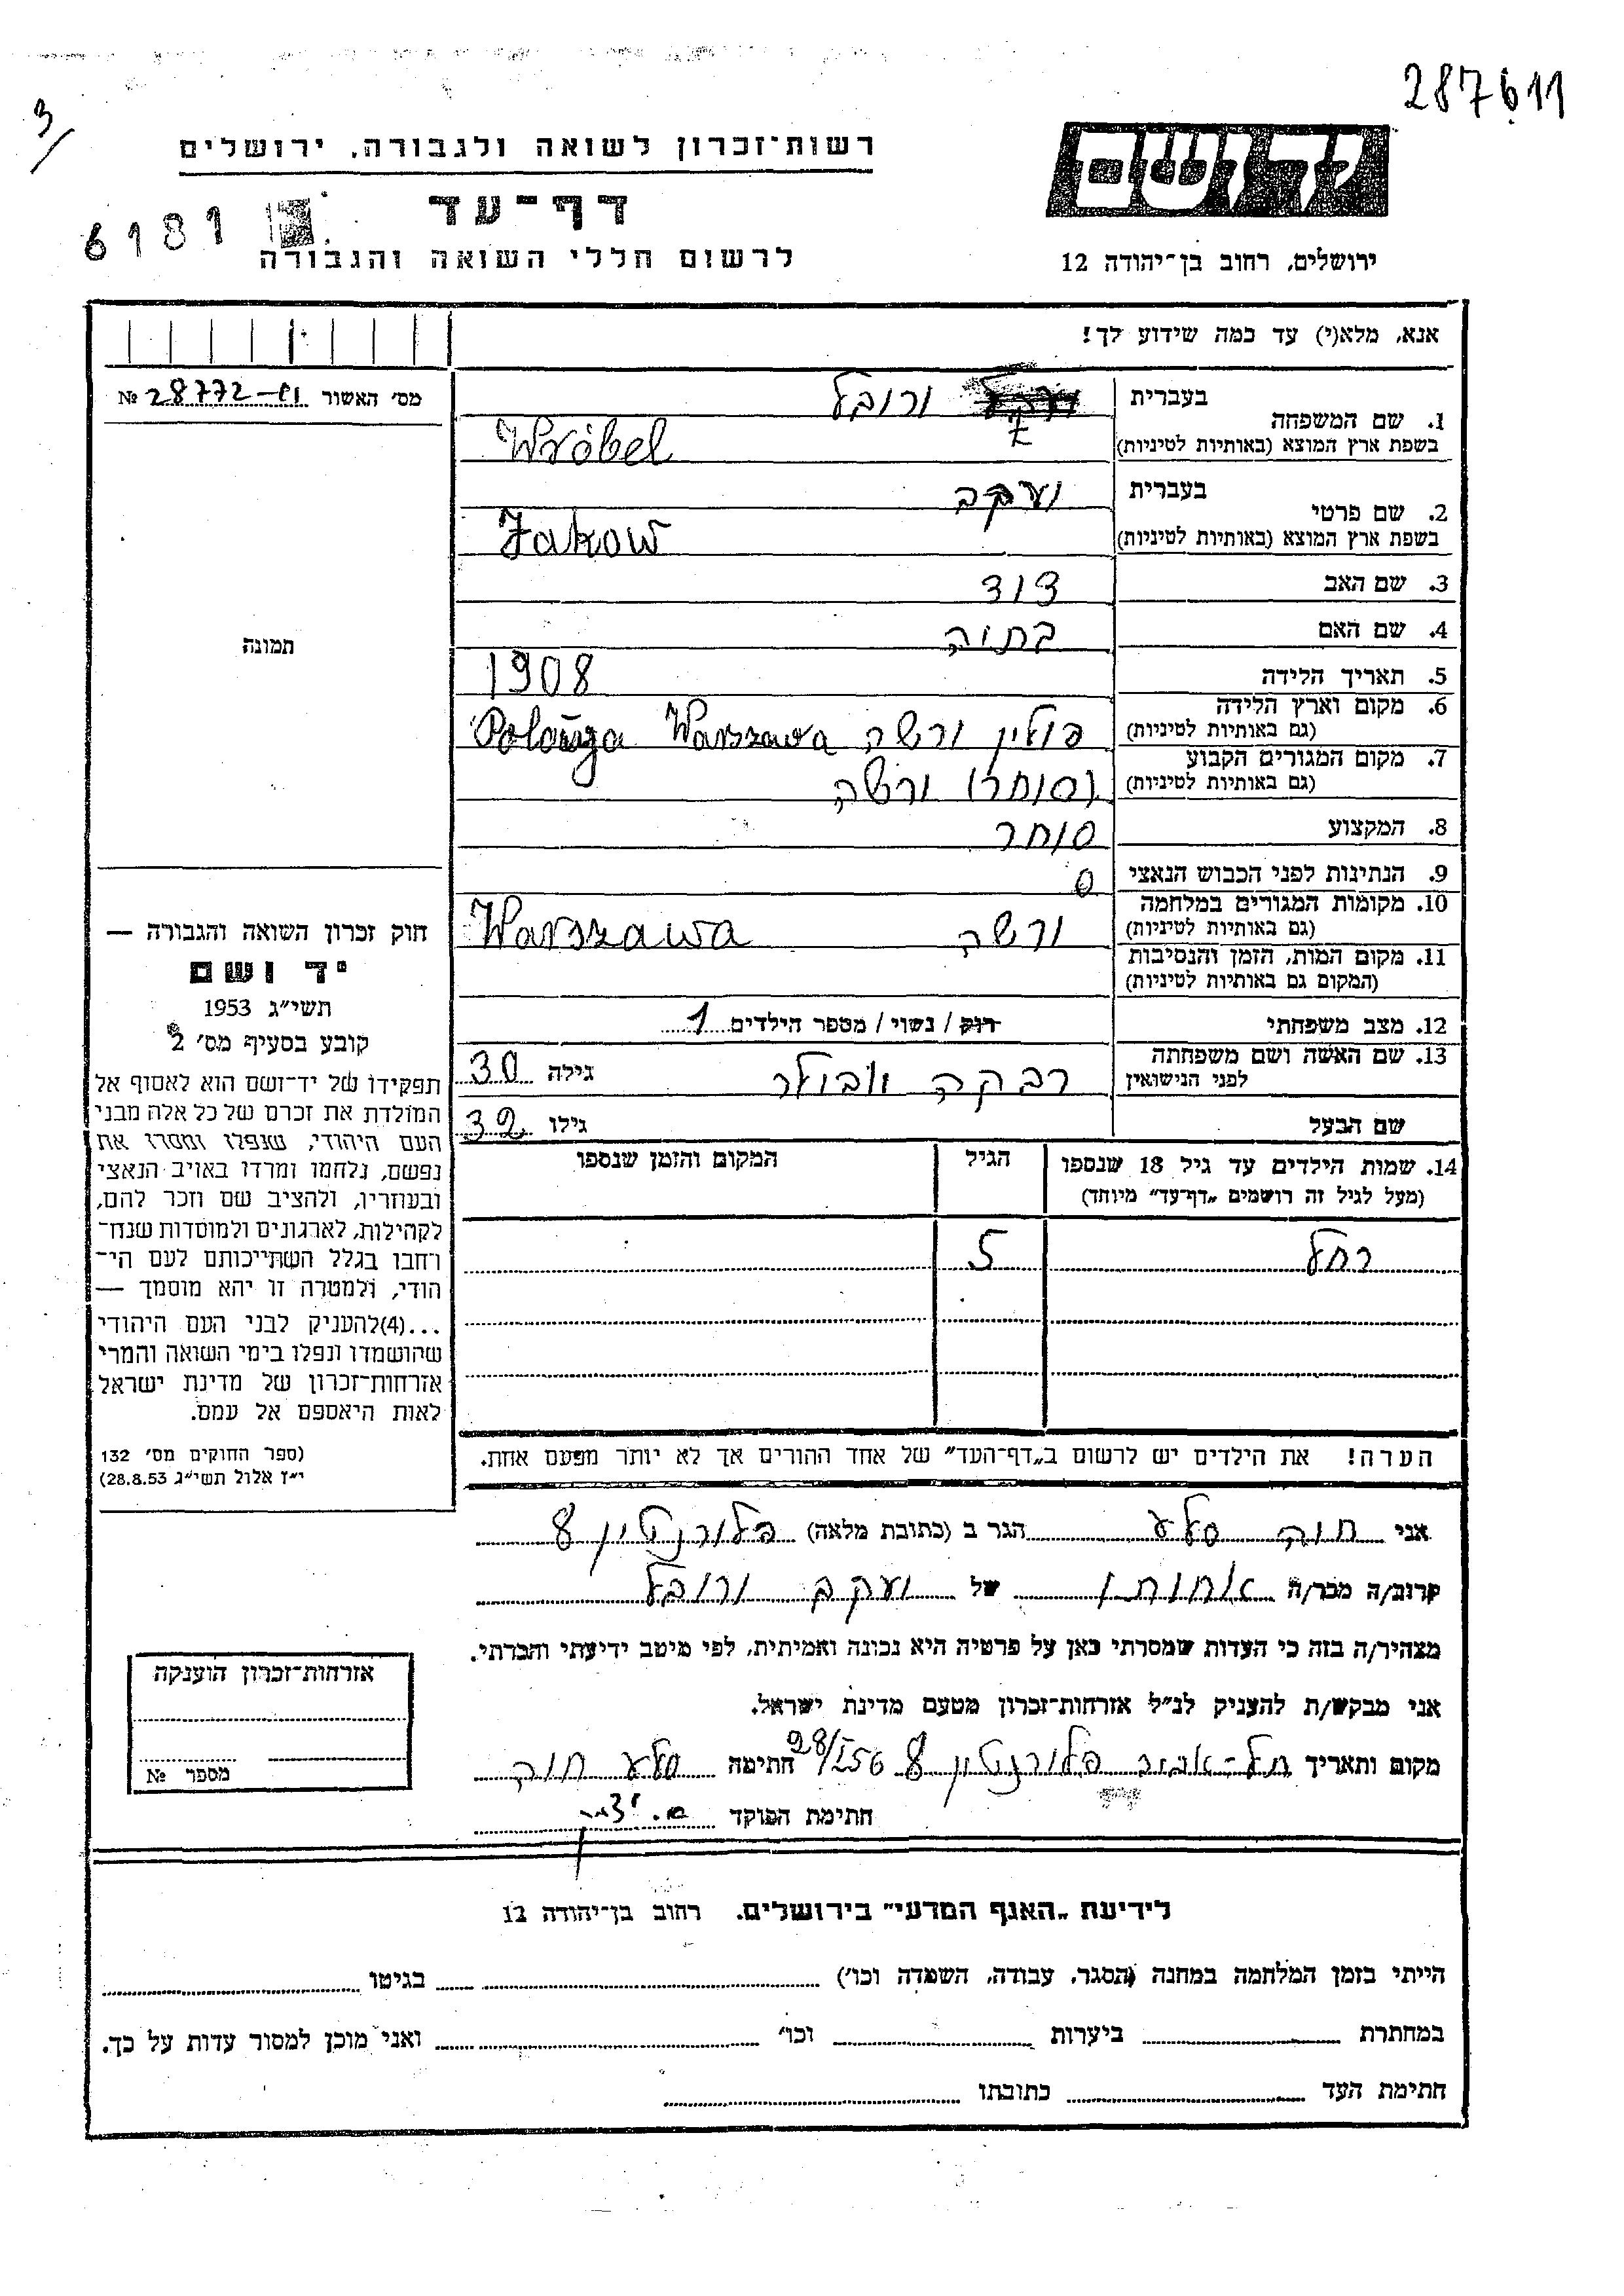 287611
3/
רשות־זכרון לשואה ולגבורה, ירושלים
יד ושם
דף־עד
6181
לרשום חללי השואה והגבורה
ירושלים, רחוב בן־יהודה 12
אנא, מלא(י) עד כמה שידוע לך!
מס׳ האשור 28772-
№
1. שם המשפחה
בעברית ורובל
בשפת ארץ המוצא (באותיות לטיניות) Wróbel
2. שם פרטי
בעברית יעקב
בשפת ארץ המוצא (באותיות לטיניות) Jakow
3. שם האב דוד
4. שם האם
תמונה
5. תאריך הלידה 1908
6. מקום וארץ הלידה פולין ורשה Warszawa
(גם באותיות לטיניות)
7. מקום המגורים הקבוע (סוחר) ורשה
(גם באותיות לטיניות)
8. המקצוע סוחר
9. הנתינות לפני הכבוש הנאצי
10. מקומות המגורים במלחמה ורשה Warszawa
(גם באותיות לטיניות)
11. מקום המות, הזמן והנסיבות
(המקום גם באותיות לטיניות)
12. מצב משפחתי רוק / נשוי / מספר הילדים 1
13. שם האשה ושם משפחתה
לפני הנישואין רבקה גילה 30
שם הבעל גילו 32
14. שמות הילדים עד גיל 18 שנספו
(מעל לגיל זה רושמים „דף־עד״ מיוחד)
הגיל
המקום והזמן שנספו
רחל 5
חוק זכרון השואה והגבורה —
יד ושם
תשי״ג 1953
קובע בסעיף מס׳ 2
תפקידו של יד־ושם הוא לאסוף אל
המולדת את זכרם של כל אלה מבני
העם היהודי, שנפלו ומסרו את
נפשם, נלחמו ומרדו באויב הנאצי
ובעוזריו, ולהציב שם וזכר להם,
לקהילות, לארגונים ולמוסדות שנח־
רחבו בגלל השתייכותם לעם הי־
הודי, ולמטרה זו יהא מוסמך —
...(4)להעניק לבני העם היהודי
שהושמדו ונפלו בימי השואה והמרי
אזרחות־זכרון של מדינת ישראל
לאות היאספם אל עמם.
(ספר החוקים מס׳ 132
י״ז אלול תשי״ג 28.8.53)
הערה! את הילדים יש לרשום ב„דף־העד״ של אחד ההורים אך לא יותר מפעם אחת.
אני חוה סלע הגר ב (כתובת מלאה) פלורנטין 8
קרוב/ה מכר/ה אחותו של יעקב ורובל
מצהיר/ה בזה כי העדות שמסרתי כאן על פרטיה היא נכונה ואמיתית, לפי מיטב ידיעתי והכרתי.
אני מבקש/ת להעניק לנ״ל אזרחות־זכרון מטעם מדינת ישראל.
מקום ותאריך תל-אביב פלורנטין 8 28/I 56 חתימה סלע חוה
חתימת הפוקד
אזרחות־זכרון הוענקה
מספר №
לידיעת „האגף המדעי״ בירושלים. רחוב בן־יהודה 12
הייתי בזמן המלחמה במחנה (הסגר, עבודה, השמדה וכו׳) בגיטו
במחתרת ביערות וכו׳ ואני מוכן למסור עדות על כך.
חתימת העד כתובתו